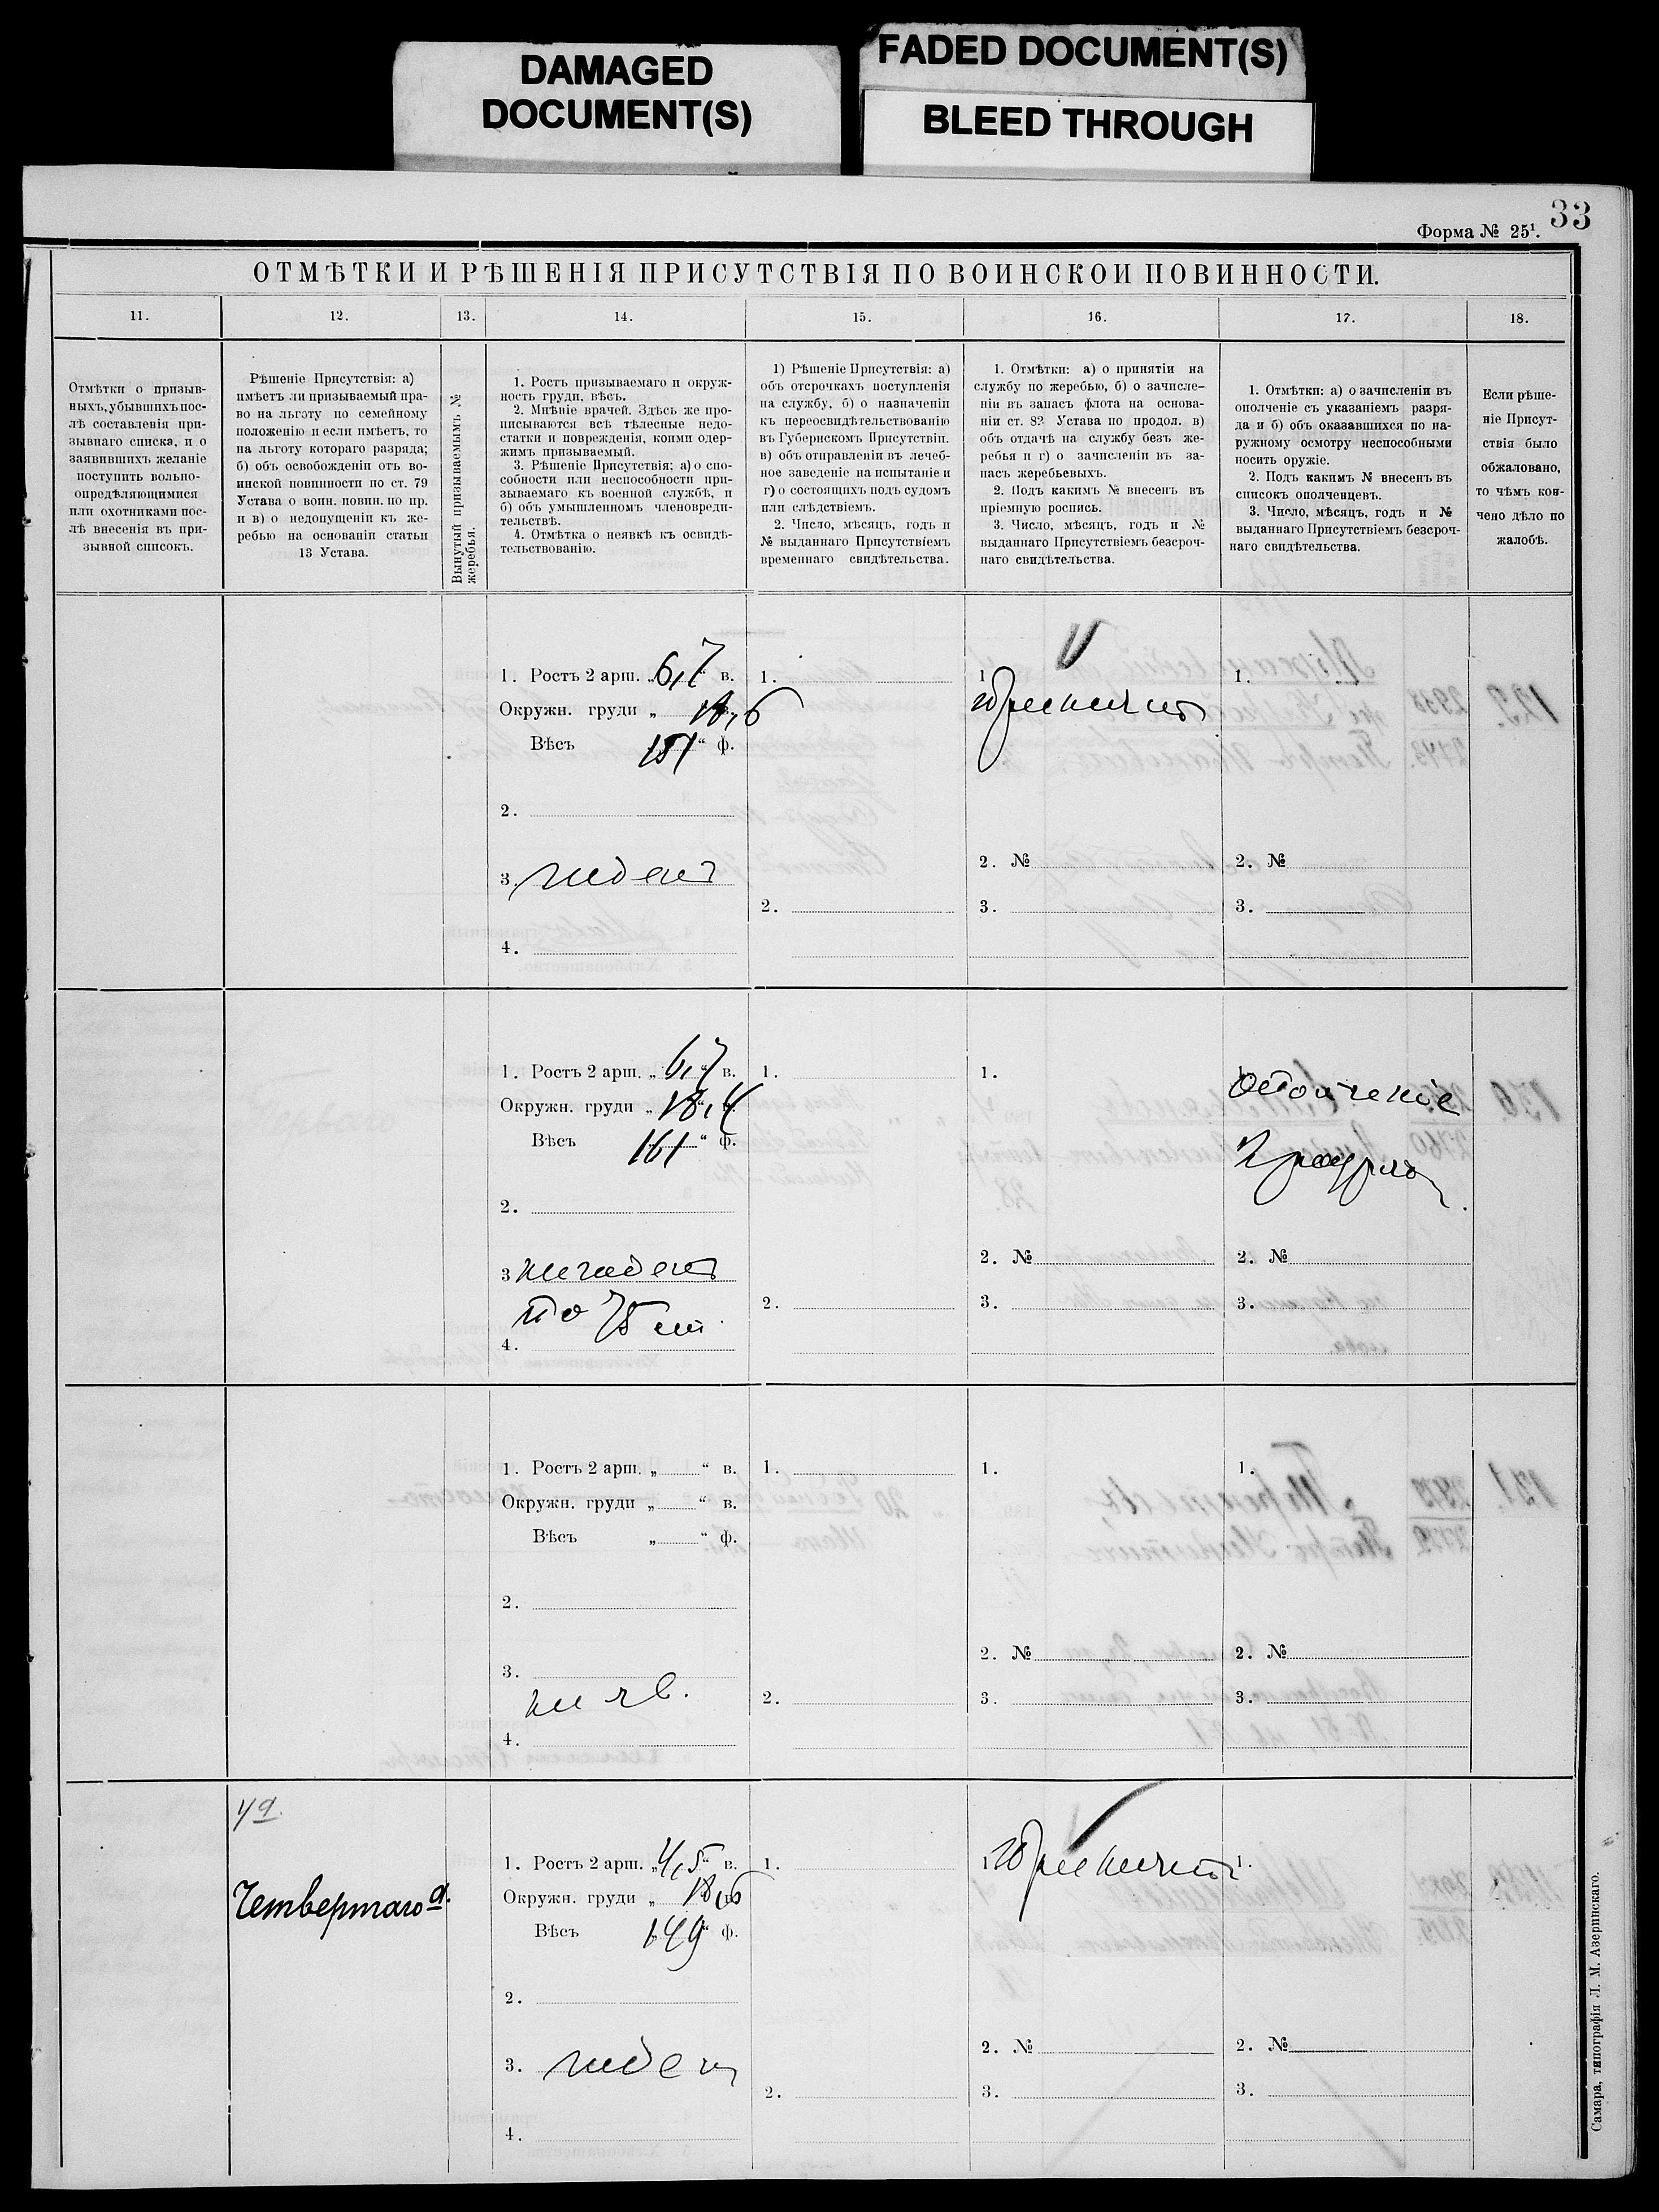 DAMAGED
DOCUMENT(S)
FADED DOCUMENT(S)
BLEED THROUGH
33
Форма № 25¹.
ОТМѢТКИ И РѢШЕНІЯ ПРИСУТСТВІЯ ПО ВОИНСКОИ ПОВИННОСТИ.
11.
12.
13.
14.
15.
16.
17.
18.
Отмѣтки о призыв-
ныхъ, убывшихъ пос-
лѣ составленія при-
зывнаго списка, и о
заявившихъ желаніе
поступить вольно-
опредѣляющимися
или охотниками пос-
лѣ внесенія въ при-
зывной списокъ.
Рѣшеніе Присутствія: а)
имѣетъ ли призываемый пра-
во на льготу по семейному
положенію и если имѣетъ, то
на льготу котораго разряда;
б) объ освобожденіи отъ во-
инской повинности по ст. 79
Устава о воин. повин. по пр.
и в) о недопущеніи къ же-
ребью на основаніи статьи
13 Устава.
Вынутый призываемымъ №
жеребья.
1. Ростъ призываемаго и окруж-
ность груди, вѣсъ.
2. Мнѣніе врачей. Здѣсь же про-
писываются всѣ тѣлесные недо-
статки и поврежденія, коими одер-
жимъ призываемый.
3. Рѣшеніе Присутствія: а) о спо-
собности или неспособности при-
зываемаго къ военной службѣ, и
б) объ умышленномъ членовреди-
тельствѣ.
4. Отмѣтка о неявкѣ къ освидѣ-
тельствованію.
1) Рѣшеніе Присутствія: а)
объ отсрочкахъ поступленія
на службу, б) о назначеніи
къ переосвидѣтельствованію
въ Губернскомъ Присутствіи.
в) объ отправленіи въ лечеб-
ное заведеніе на испытаніе и
г) о состоящихъ подъ судомъ
или слѣдствіемъ.
2. Число, мѣсяцъ, годъ и
№ выданнаго Присутствіемъ
временнаго свидѣтельства.
1. Отмѣтки: а) о принятіи на
службу по жеребью, б) о зачисле-
ніи въ запасъ флота на основа-
ніи ст. 82 Устава по продол. в)
объ отдачѣ на службу безъ же-
ребья и г) о зачисленіи въ за-
пасъ жеребьевыхъ.
2. Подъ какимъ № внесенъ въ
пріемную роспись.
3. Число, мѣсяцъ, годъ и №
выданнаго Присутствіемъ безсроч-
наго свидѣтельства.
1. Отмѣтки: а) о зачисленіи въ
ополченіе съ указаніемъ разря-
да и б) объ оказавшихся по на-
ружному осмотру неспособными
носить оружіе.
2. Подъ какимъ № внесенъ въ
списокъ ополченцевъ.
3. Число, мѣсяцъ, годъ и №
выданнаго Присутствіемъ безсроч-
наго свидѣтельства.
Если рѣше-
ніе Присут-
ствія было
обжаловано,
то чѣмъ кон-
чено дѣло по
жалобѣ.
1. Ростъ 2 арш. „ 6,7 “ в.
Окружн. груди „ 18,6
Вѣсъ 151 “ ф.
2.
3. годенъ
4.
1.
2.
1.
2. №
3.
1.
2. №
3.
1. Ростъ 2 арш. „ 6,7 “ в.
Окружн. груди „ 18,4 “ в.
Вѣсъ 161 “ ф.
2.
3 негоденъ
по 75 ст
4.
1.
2.
1.
2. №
3.
Ополченіе
2 разряда
2. №
3.
1. Ростъ 2 арш. „ “ в.
Окружн. груди „ “ в.
Вѣсъ „ “ ф.
2.
3.
не яв.
4.
1.
2.
1.
2. №
3.
1.
2. №
3.
Четвертаго
1. Ростъ 2 арш. „ 4,5 “ в.
Окружн. груди „ 18,6
Вѣсъ 149 “ ф.
2.
3. годен
4.
1.
2.
1.
2. №
3.
1.
2. №
3.
Самара, типографія Л. М. Азеринскаго.